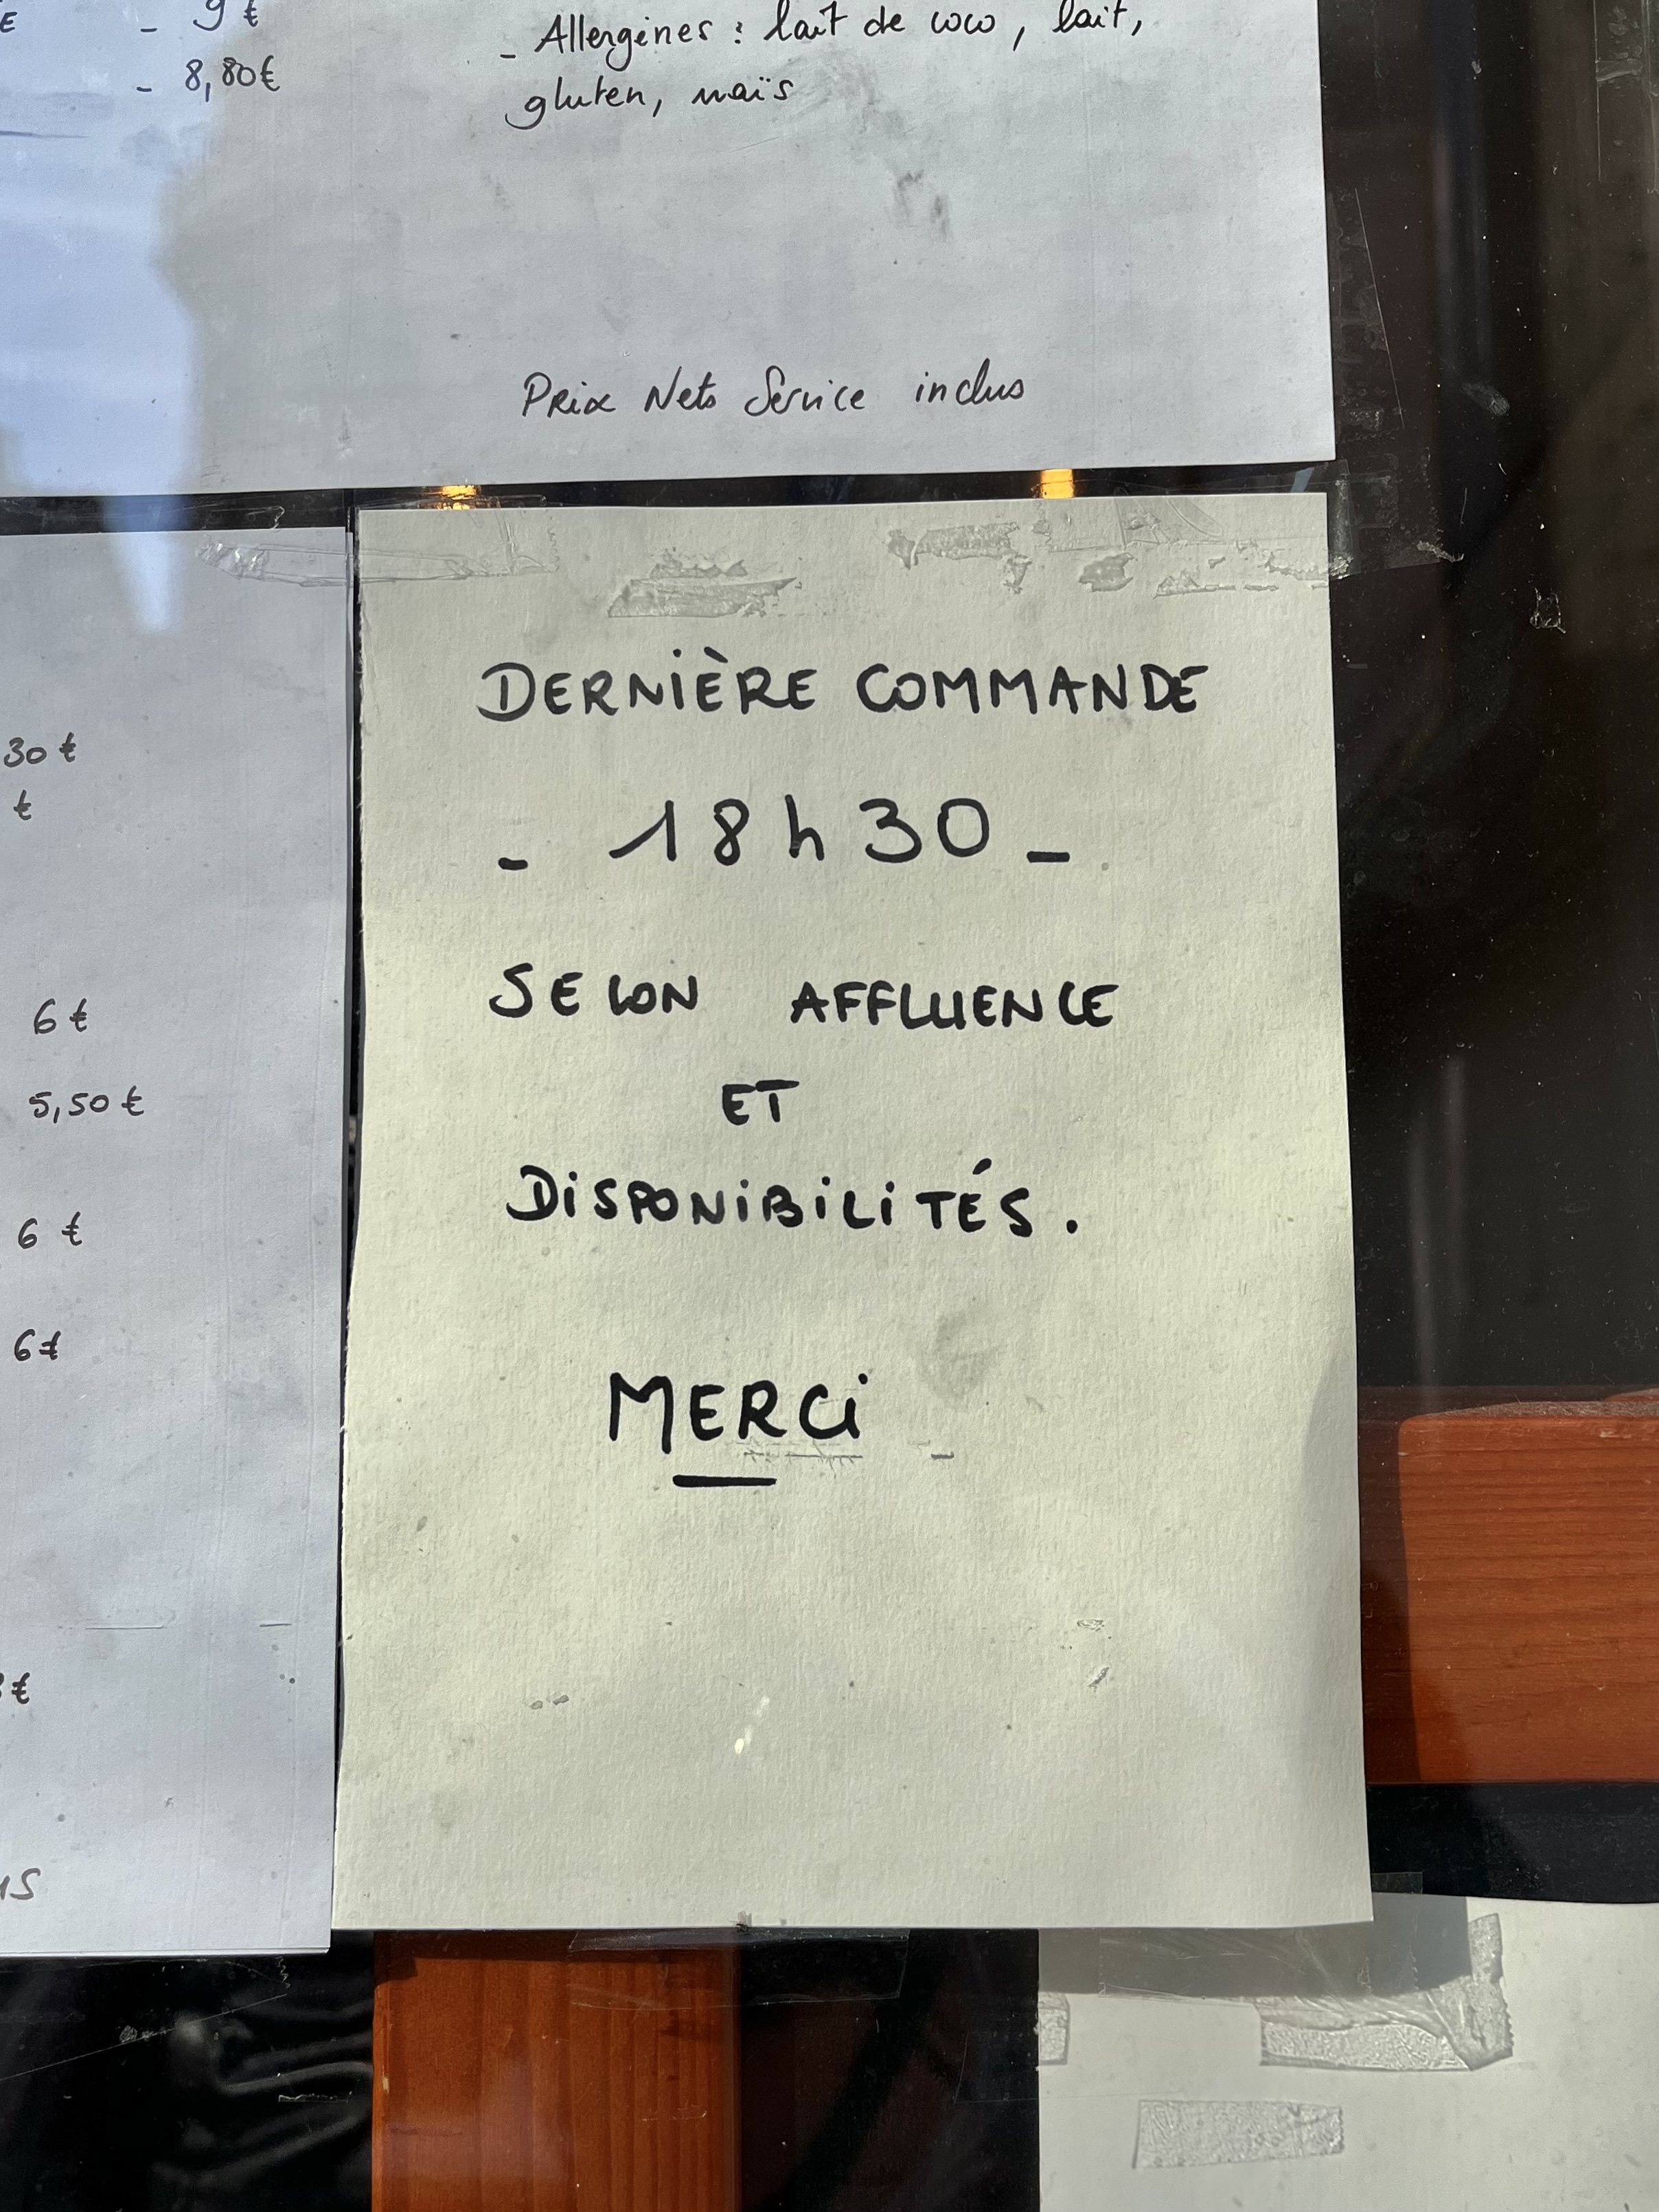 - 9 €
- 8,80€
- Allergènes : lait de coco, lait,
gluten, maïs
Prix Nets Service inclus
30 €
€
6 €
5,50 €
6 €
6 €
€
DERNIÈRE COMMANDE
- 18 h 30 -
SELON AFFLUENCE
ET
DISPONIBILITÉS.
MERCI